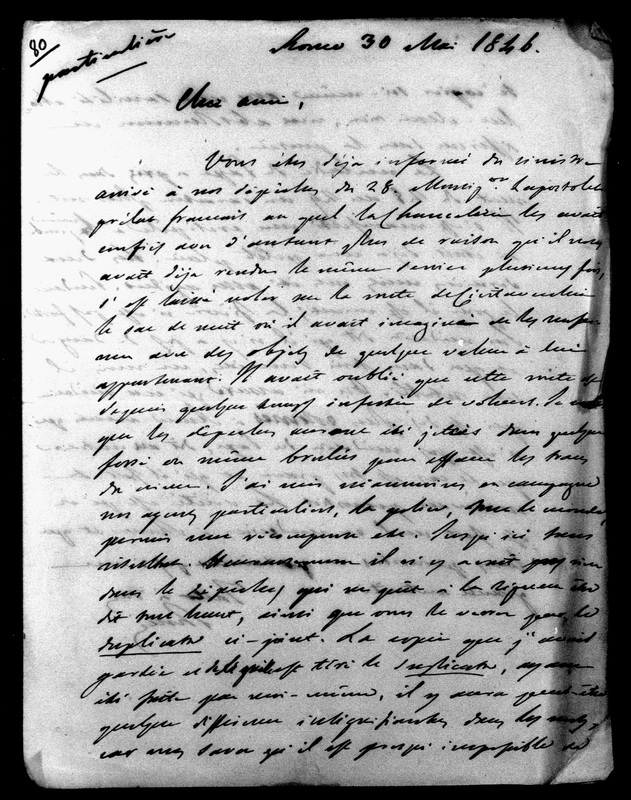 80
particulière
Rome 30 Mai 1846.
Cher ami,
Vous êtes déjà informé du sinistre
arrivé à nos dépêches du 28. Monsig.or Lapostolet
prélat français au quel la Chancellerie les avait
confiées avec d'autant plus de raison qu'il nous
avait déjà rendu le même service plusieurs fois,
s'est laissé voler sur la route de Civitavecchia
le sac de nuit où il avait imaginé de les renfer
mer avec des objets de quelque valeur à lui
appartenant. Il avait oublié que cette route est
depuis quelque temps infestée de voleurs. Je crois
que les dépêches auront été jetées dans quelque
fossé ou même brulées pour effacer les traces
du crime. J'ai mis néanmoins en campagne
nos agents particuliers, la police, tout le monde,
promis une récompense etc. Jusqu'ici sans
résultat. Heureusement il n'y avait rien
dans les dépêches qui ne pût à la rigueur être
dit tout haut, ainsi que vous le verrez par le
duplicata ci-joint. La copie que j'avais
gardée et de laquelle est tiré le duplicata, ayant
été faite par moi-même, il y aura peut-être
quelque différence insignifiante dans les mots,
car vous savez qu'il est presqu'impossible de